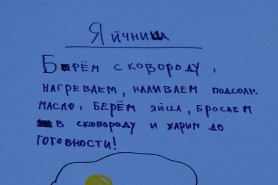 Яичница
Берём сковороду,
нагреваем, наливаем подсолн.
масло, берём яйца, бросаем
в сковороду и жарим до
готовности!